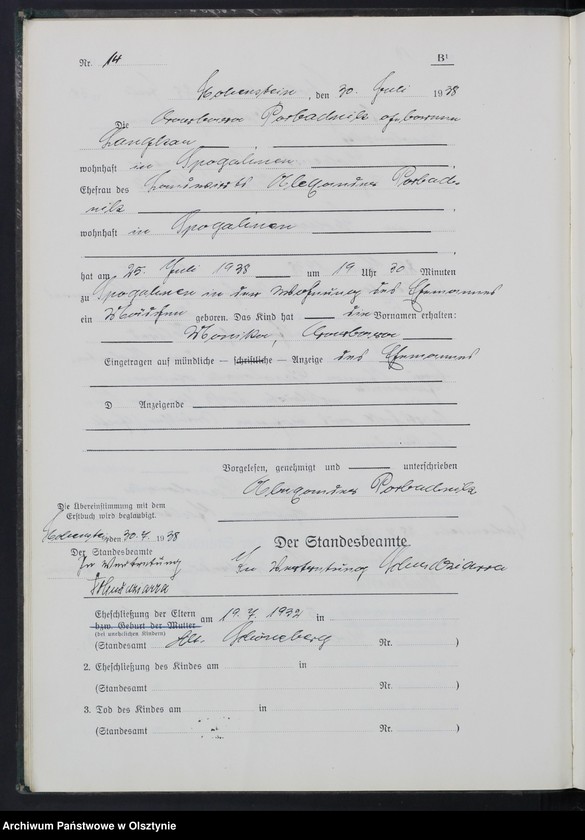 Nr. 14 B¹
Hohenstein, den 30. Juli 1938
Die Barbara geborene
wohnhaft in Spogahnen
Ehefrau des Landwirts
wohnhaft in Spogahnen
hat am 25. Juli 1938 um 19 Uhr 30 Minuten
zu Spogahnen in der Wohnung des Ehemannes
ein Mädchen geboren. Das Kind hat die Vornamen erhalten:
Monika, Barbara
Eingetragen auf mündliche — schriftliche — Anzeige des Ehemannes
D Anzeigende
Vorgelesen, genehmigt und unterschrieben
Die Übereinstimmung mit dem
Erstbuch wird beglaubigt.
Hohenstein, den 30.7. 1938
Der Standesbeamte
In Vertretung
Der Standesbeamte.
In Vertretung
Eheschließung der Eltern am 19.7. 1932 in
bzw. Geburt der Mutter
(bei unehelichen Kindern)
(Standesamt Schöneberg Nr. )
2. Eheschließung des Kindes am in
(Standesamt Nr. )
3. Tod des Kindes am in
(Standesamt Nr. )
Archiwum Państwowe w Olsztynie